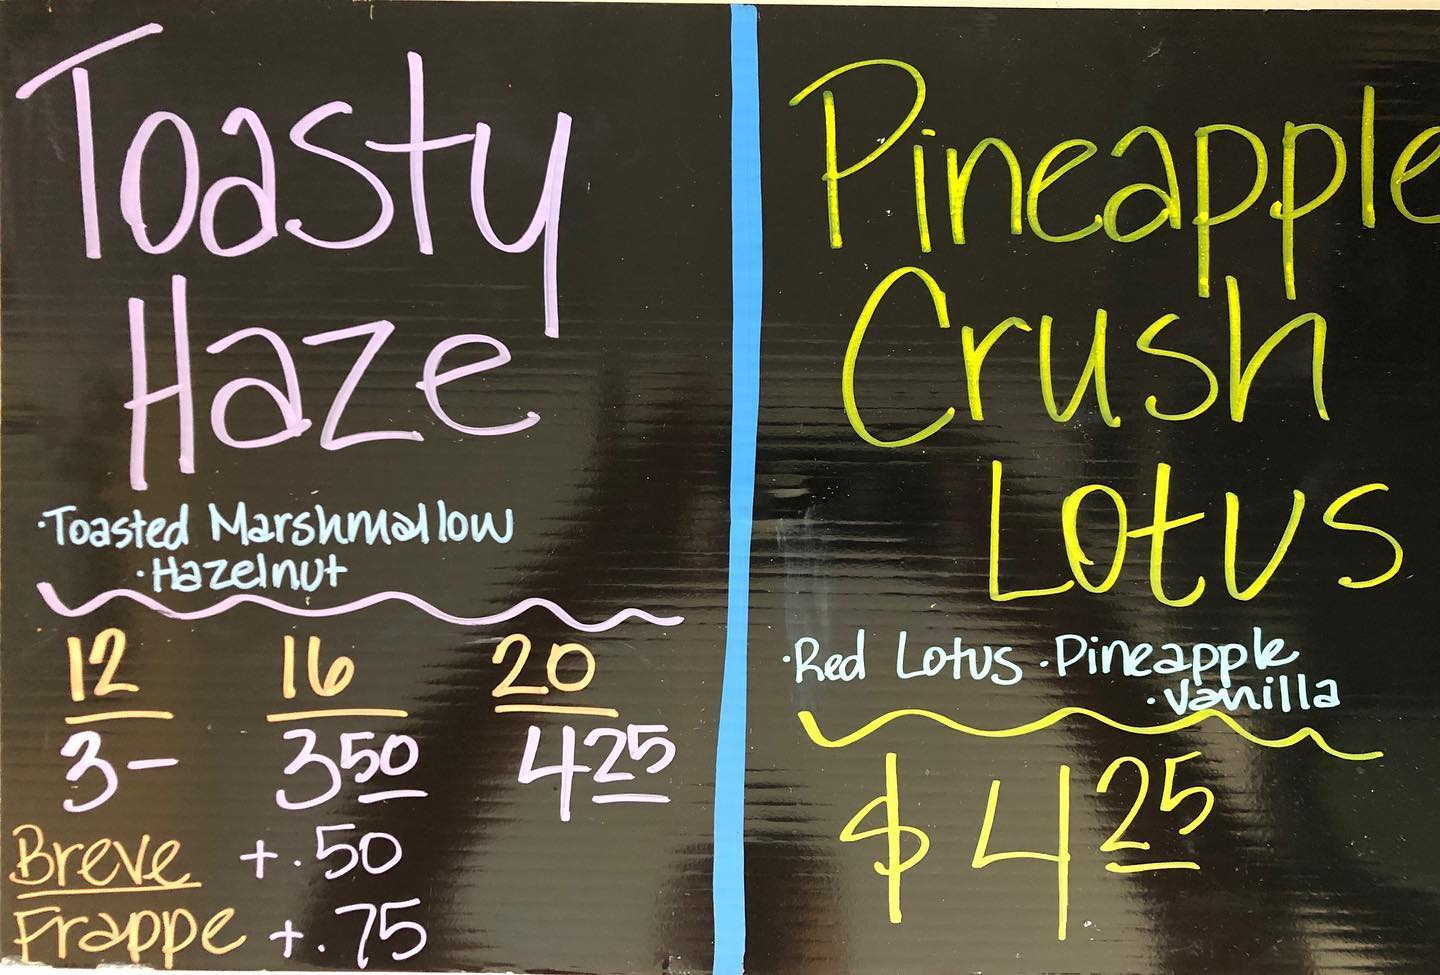 Toasty
Haze
·Toasted Marshmallow
·Hazelnut
12 16 20
3- 3 50 4 25
Breve +.50
Frappe +.75
Pineapple
Crush
Lotus
·Red Lotus ·Pineapple
·Vanilla
$4 25